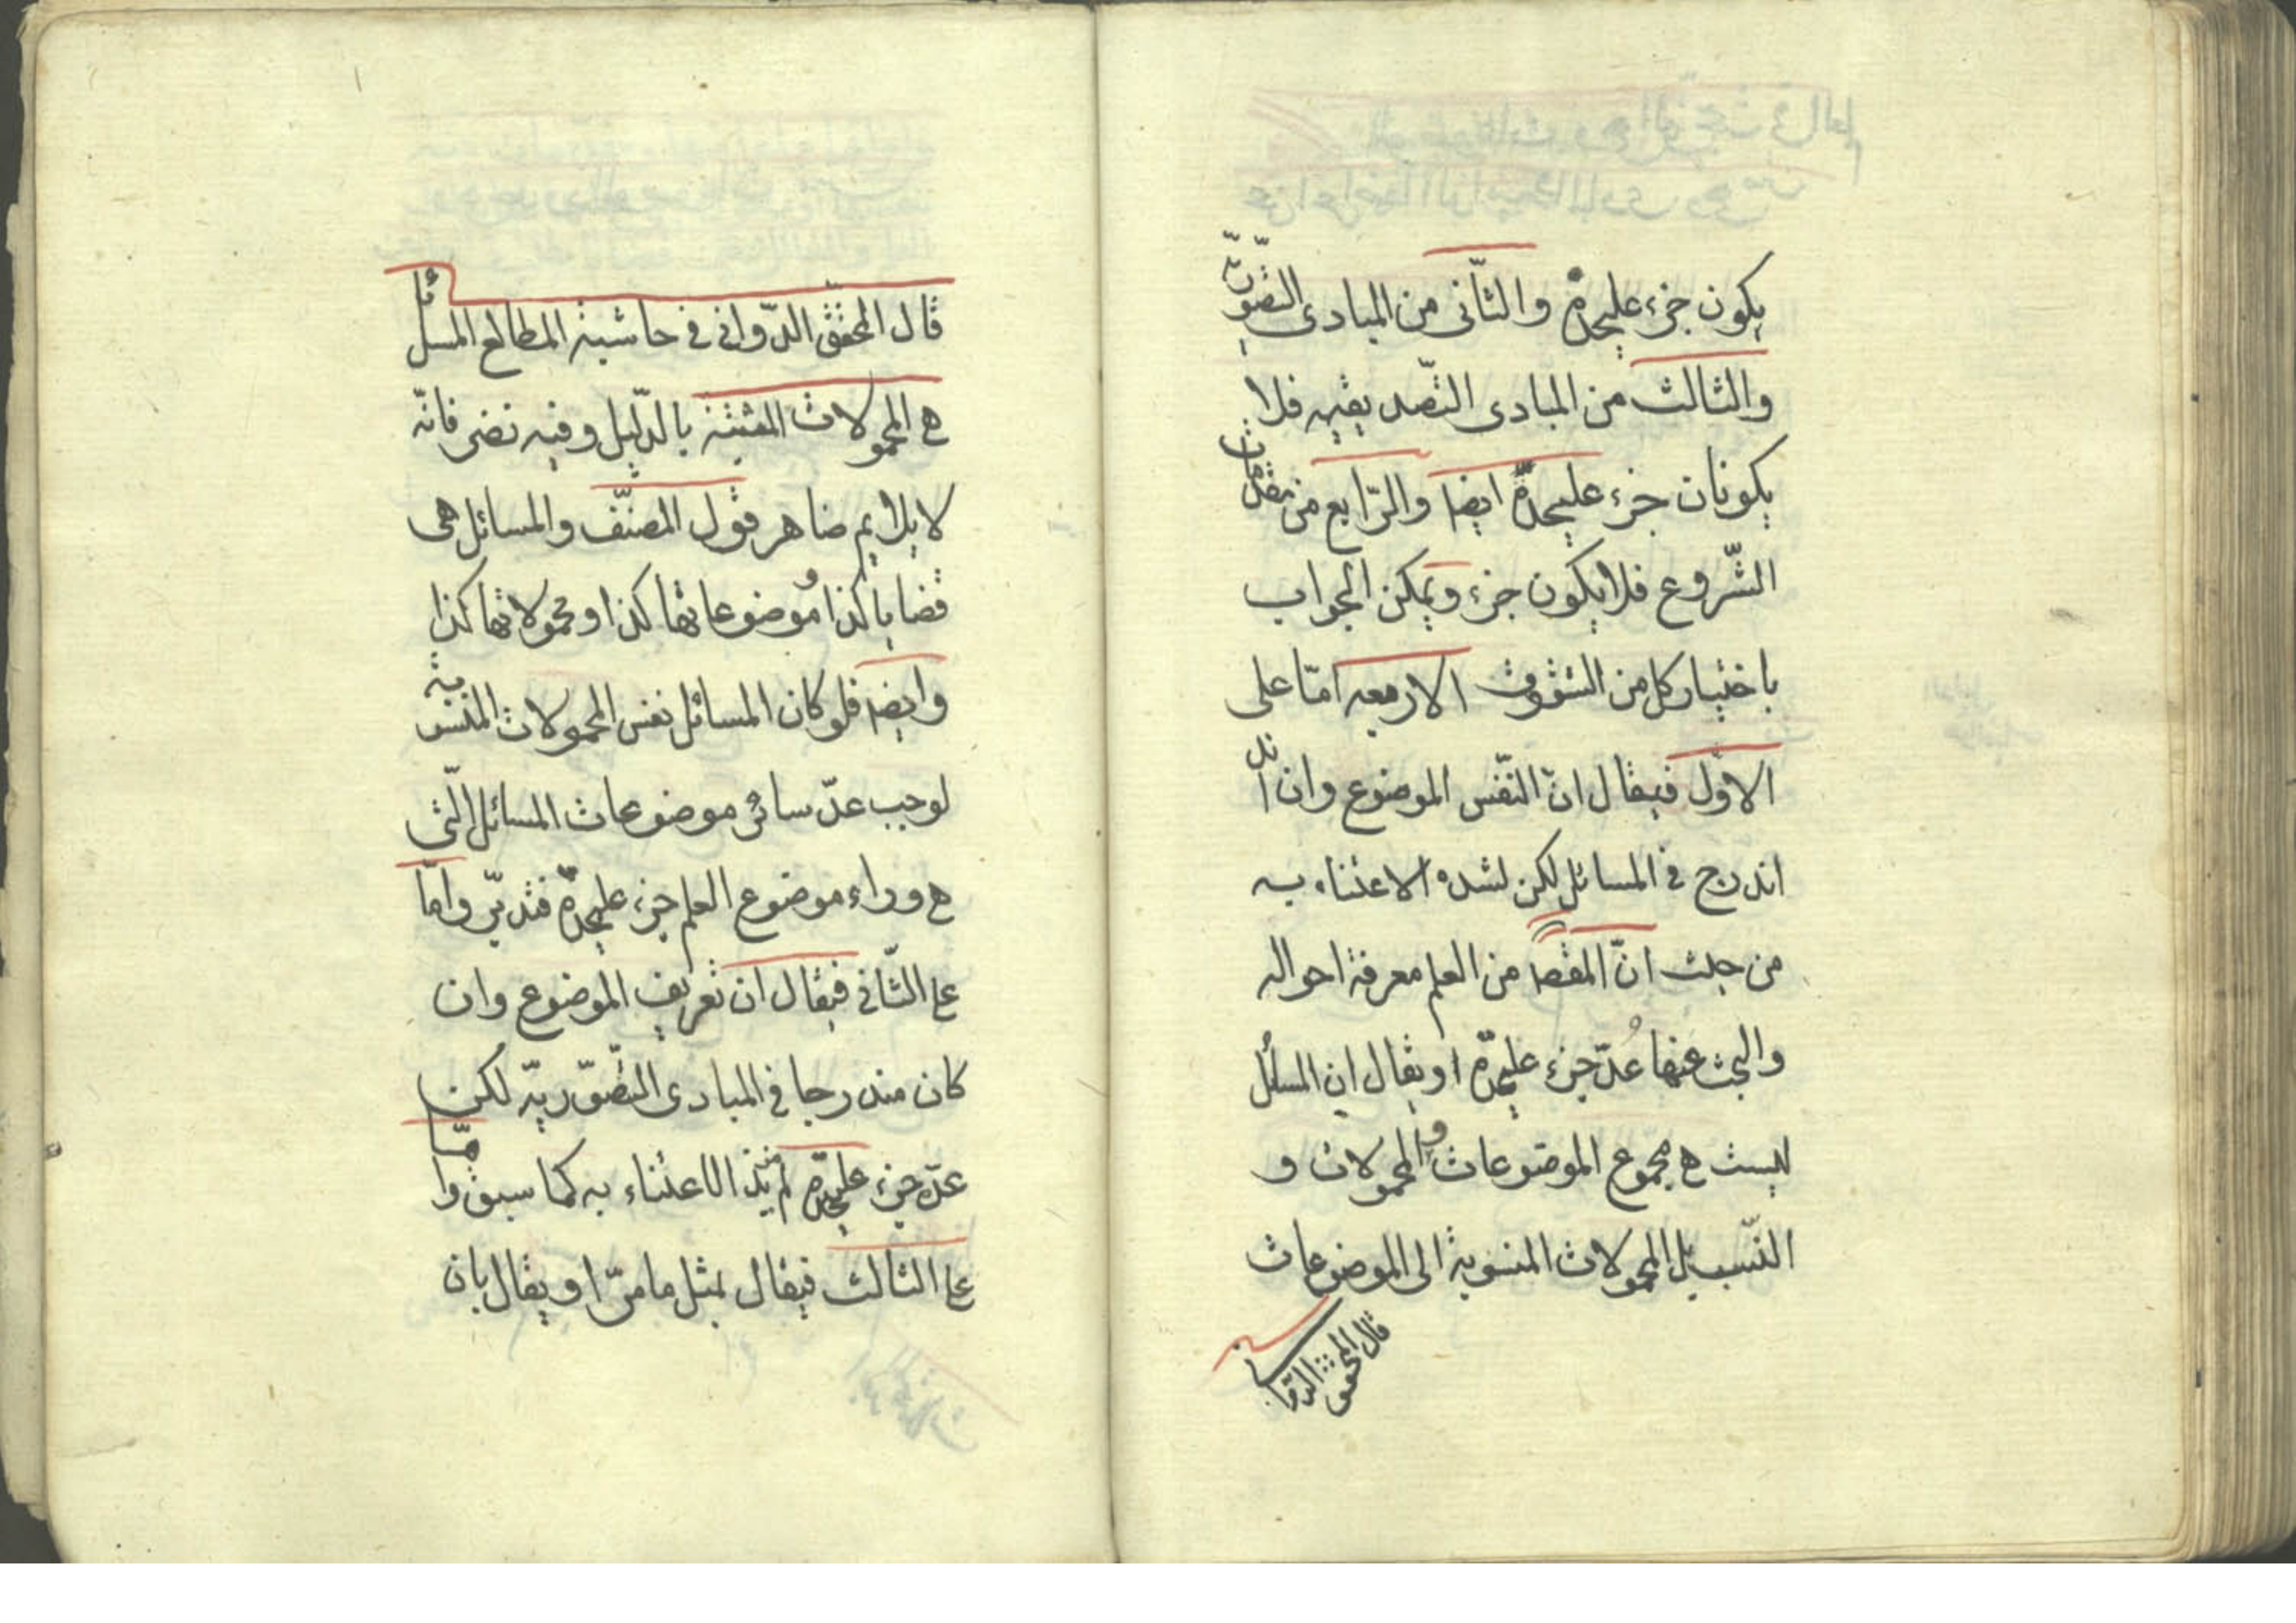 يكون جزء عليحدة والثّانى من المبادى التصّوّريّة
والثالث من المبادى التّصديقيه فلا
يكونان جزء عليحدة ايضا والرّابع من مقدّمات
الشّروع فلا يكون جزء ويمكن الجواب
باختيار كل من الشقوق الاربعه امّا على
الاوّل فيقال انّ النّفس الموضوع وان
اندرج في المسائل لكن لشده الاعتناء به
من حيث انّ المقصد من العلم معرفة احواله
والبحث عنها عُدّ جزء عليحدة او يقال ان المسائل
ليست هي مجموع الموضوعات والمحمولات و
النّسب بل المحمولات المنسوبة الى الموضوعات
قال المحقق الدّوانى
قال المحقّق الدّوانى في حاشية المطالع المسائل
هي المحمولات المثبتة بالدّليل وفيه نضر فانّه
لا يلايم ضاهر قول المصنّف والمسائل هى
قضايا كذا وموضوعاتها كذا ومحمولاتها كذا
وايضا فلو كان المسائل نفس المحمولات المنسوبة
لوجب عدّ سائر موضوعات المسائل الّتى
هي وراء موضوع العلم جزء عليحدة فتدبّر وامّا
على الثّانى فيقال ان تعريف الموضوع وان
كان مندرجا في المبادى التصّوّريّه لكن
عدّه جزء عليحدة لمزيد الاعتناء به كما سبق وامّا
على الثالث فيقال بمثل ما مرّ او يقال بان